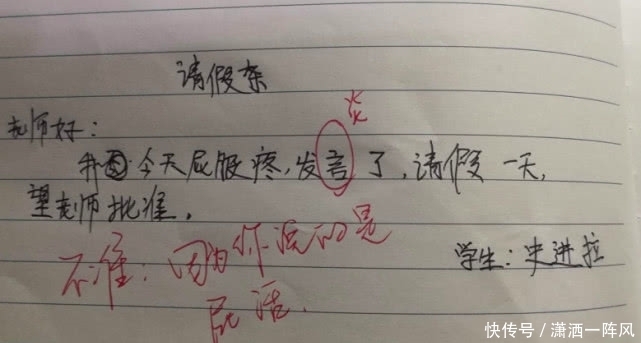 请假条
炎
老师好：
我因今天屁股疼，发言了，请假一天，
望老师批准。
不准：因为你说的是
屁话.
学生：史进拉
快传号／潇洒一阵风